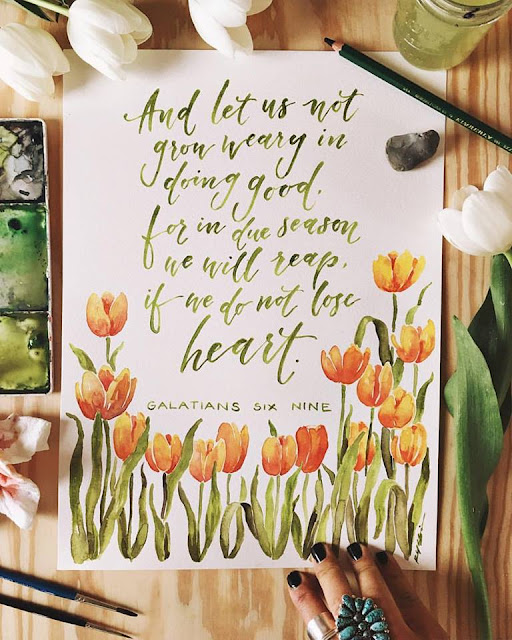 And let us not
grow weary in
doing good,
for in due season
we will reap,
if we do not lose
heart.
GALATIANS SIX NINE
KIMBERLY